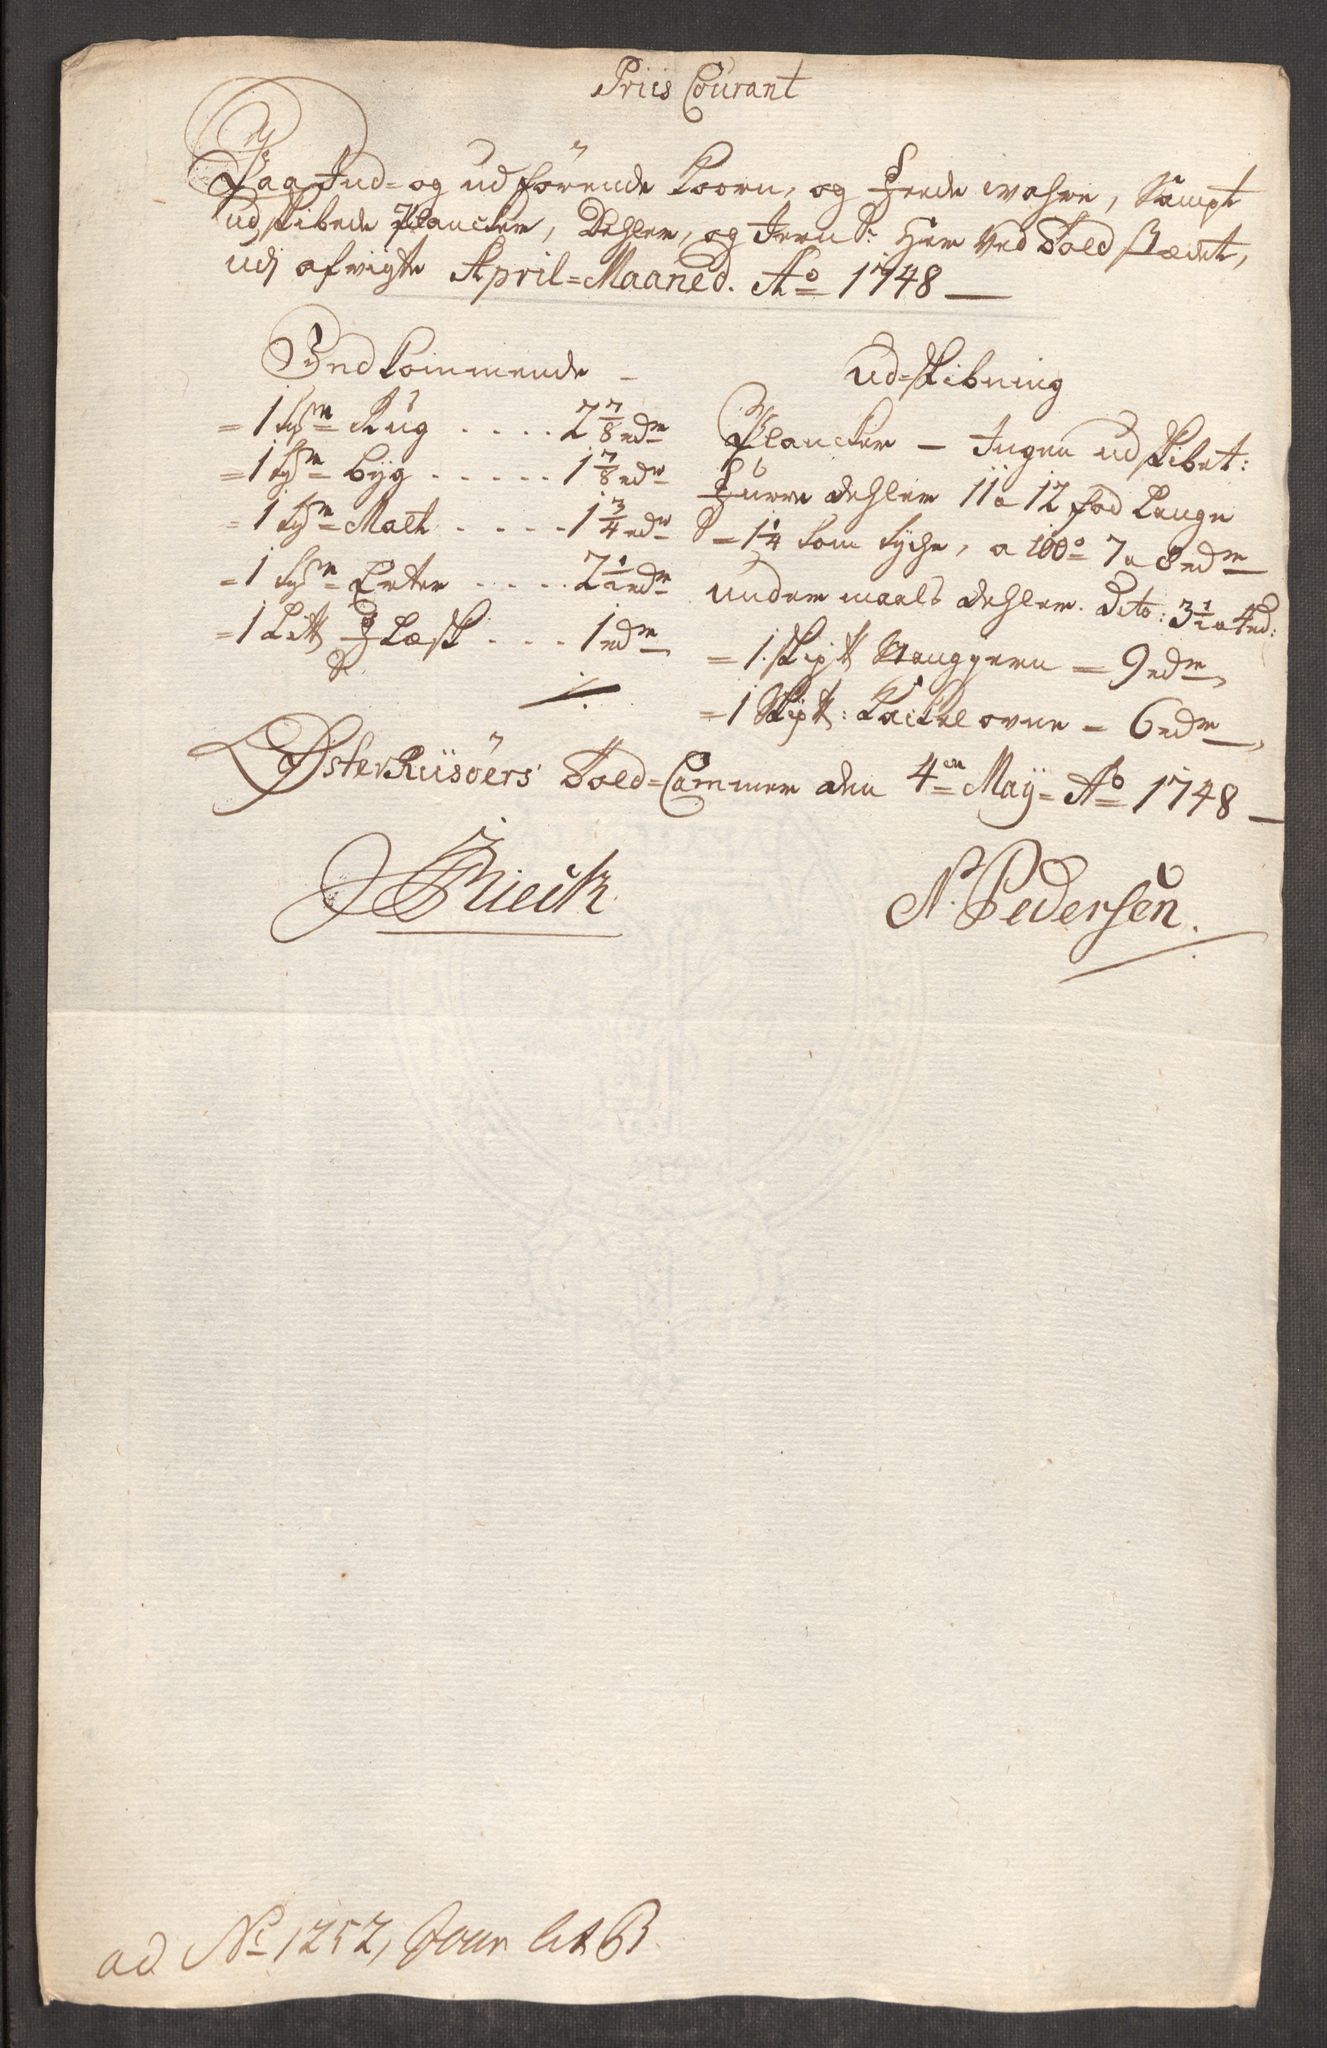 Priis Courant
Paa Ind= og udförende Koorn, og Feede wahre, Sampt
udskibede Plancker, Dehler, og Jern &: Her Ved Told Stædet,
udj afvigte April=Maaned. Ao 1748 —
Ind kommende —
= 1 Tne Rug .... 2 7/8 rdr
= 1 Tne byg ..... 1 7/8 rdr
= 1 Tne Malt .... 1 3/4 rdr
= 1 Tne Erter .... 2 1/2 rdr
= 1 Litt Flæsk ... 1 rdr
Ud=skibning
Plancker — Ingen udskibet:
Furre dehler 11 a 12 fod Lange
= 1 1/4 tom tyche, a 100de 7 a 8 rdr
under maals dehler. dito: 3 1/2 a 4 rd:
= 1 Skip tt Stangjern = 9 rdr,
= 1 Skip tt: Kackelovne = 6 rdr,
Østerriisöers Told=Cammer den 4en Maÿ= Ao 1748 —
N. Pedersen.
ad No 1252, Jour lit B